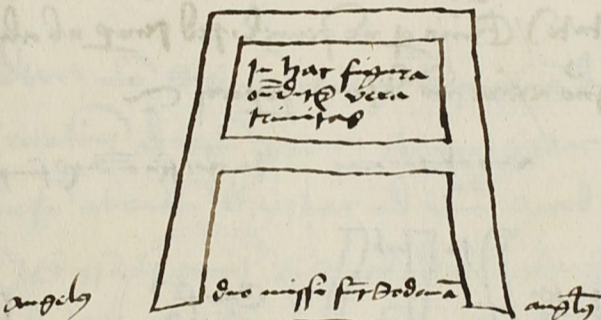 In hac figura
ondit᷒ vera
trinitas
angelꝰ duo missi sūt Sodomā anglꝰ